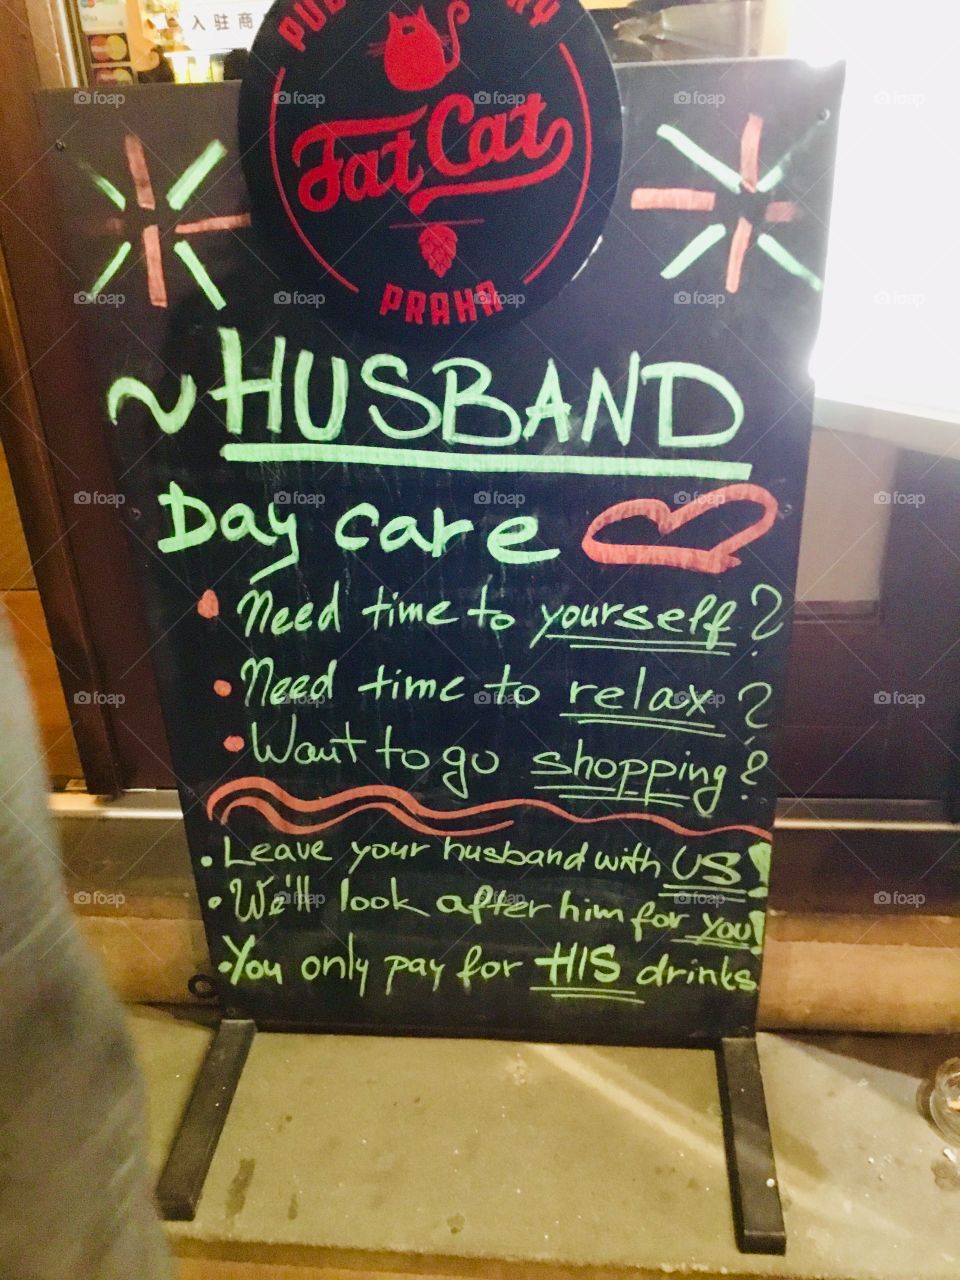 入驻商
VISA
Fat Cat
PRAHA
~HUSBAND
Day care
Need time to yourself?
Need time to relax?
Want to go shopping?
Leave your husband with US!
We'll look after him for you!
You only pay for HIS drinks